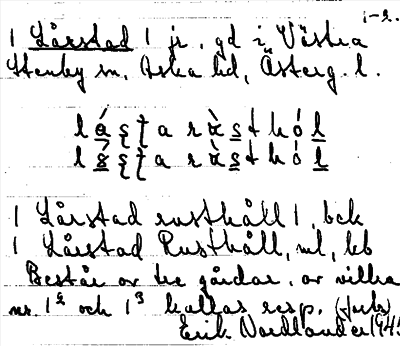 1-2.
1 Lårstad 1 jr., gd i Västra
Stenby sn, Aska hd, Österg. l.
1 Lårstad rusthåll 1, bck
1 Lårstad Rusthåll, ml, kb
Består av tre gårdar, av vilka
nr. 1² och 1³ kallas resp.
Erik Nordlander 1945